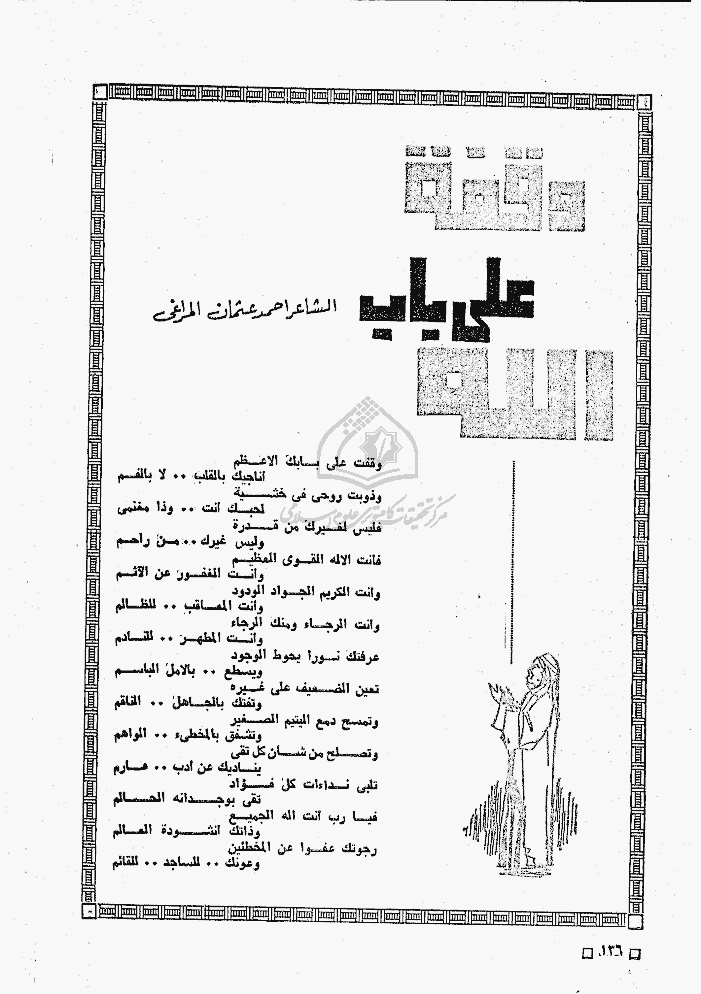 وقفة
على باب
الشاعر احمد عثمان المراغى
الله
وقفت على بابك الاعظم
اناجيك بالقلب .. لا بالفم
وذوبت روحى فى خشية
لحبك أنت .. وذا مغنمى
فليس لغيرك من قدرة
وليس غيرك .. من راحم
فأنت الاله القوى العظيم
وأنت الغفور عن الآثم
وانت الكريم الجواد الودود
وأنت المعاقب .. للظالم
وانت الرجاء ومنك الرجاء
وأنت المطهر .. للنادم
عرفتك نورا يحوط الوجود
ويسطع .. بالامل الباسم
تعين الضعيف على غيره
وتفتك بالجاهل .. الناقم
وتمسح دمع اليتيم الصغير
وتشفق بالمخطىء .. الواهم
وتصلح من شأن كل تقى
يناديك عن أدب .. عارم
تلبى نداءات كل فؤاد
تقى بوجدانه الحالم
فيا رب أنت اله الجميع
وذاتك أنشودة العالم
رجوتك عفوا عن المخطئين
وعونك .. للساجد .. للقائم
١٣٦